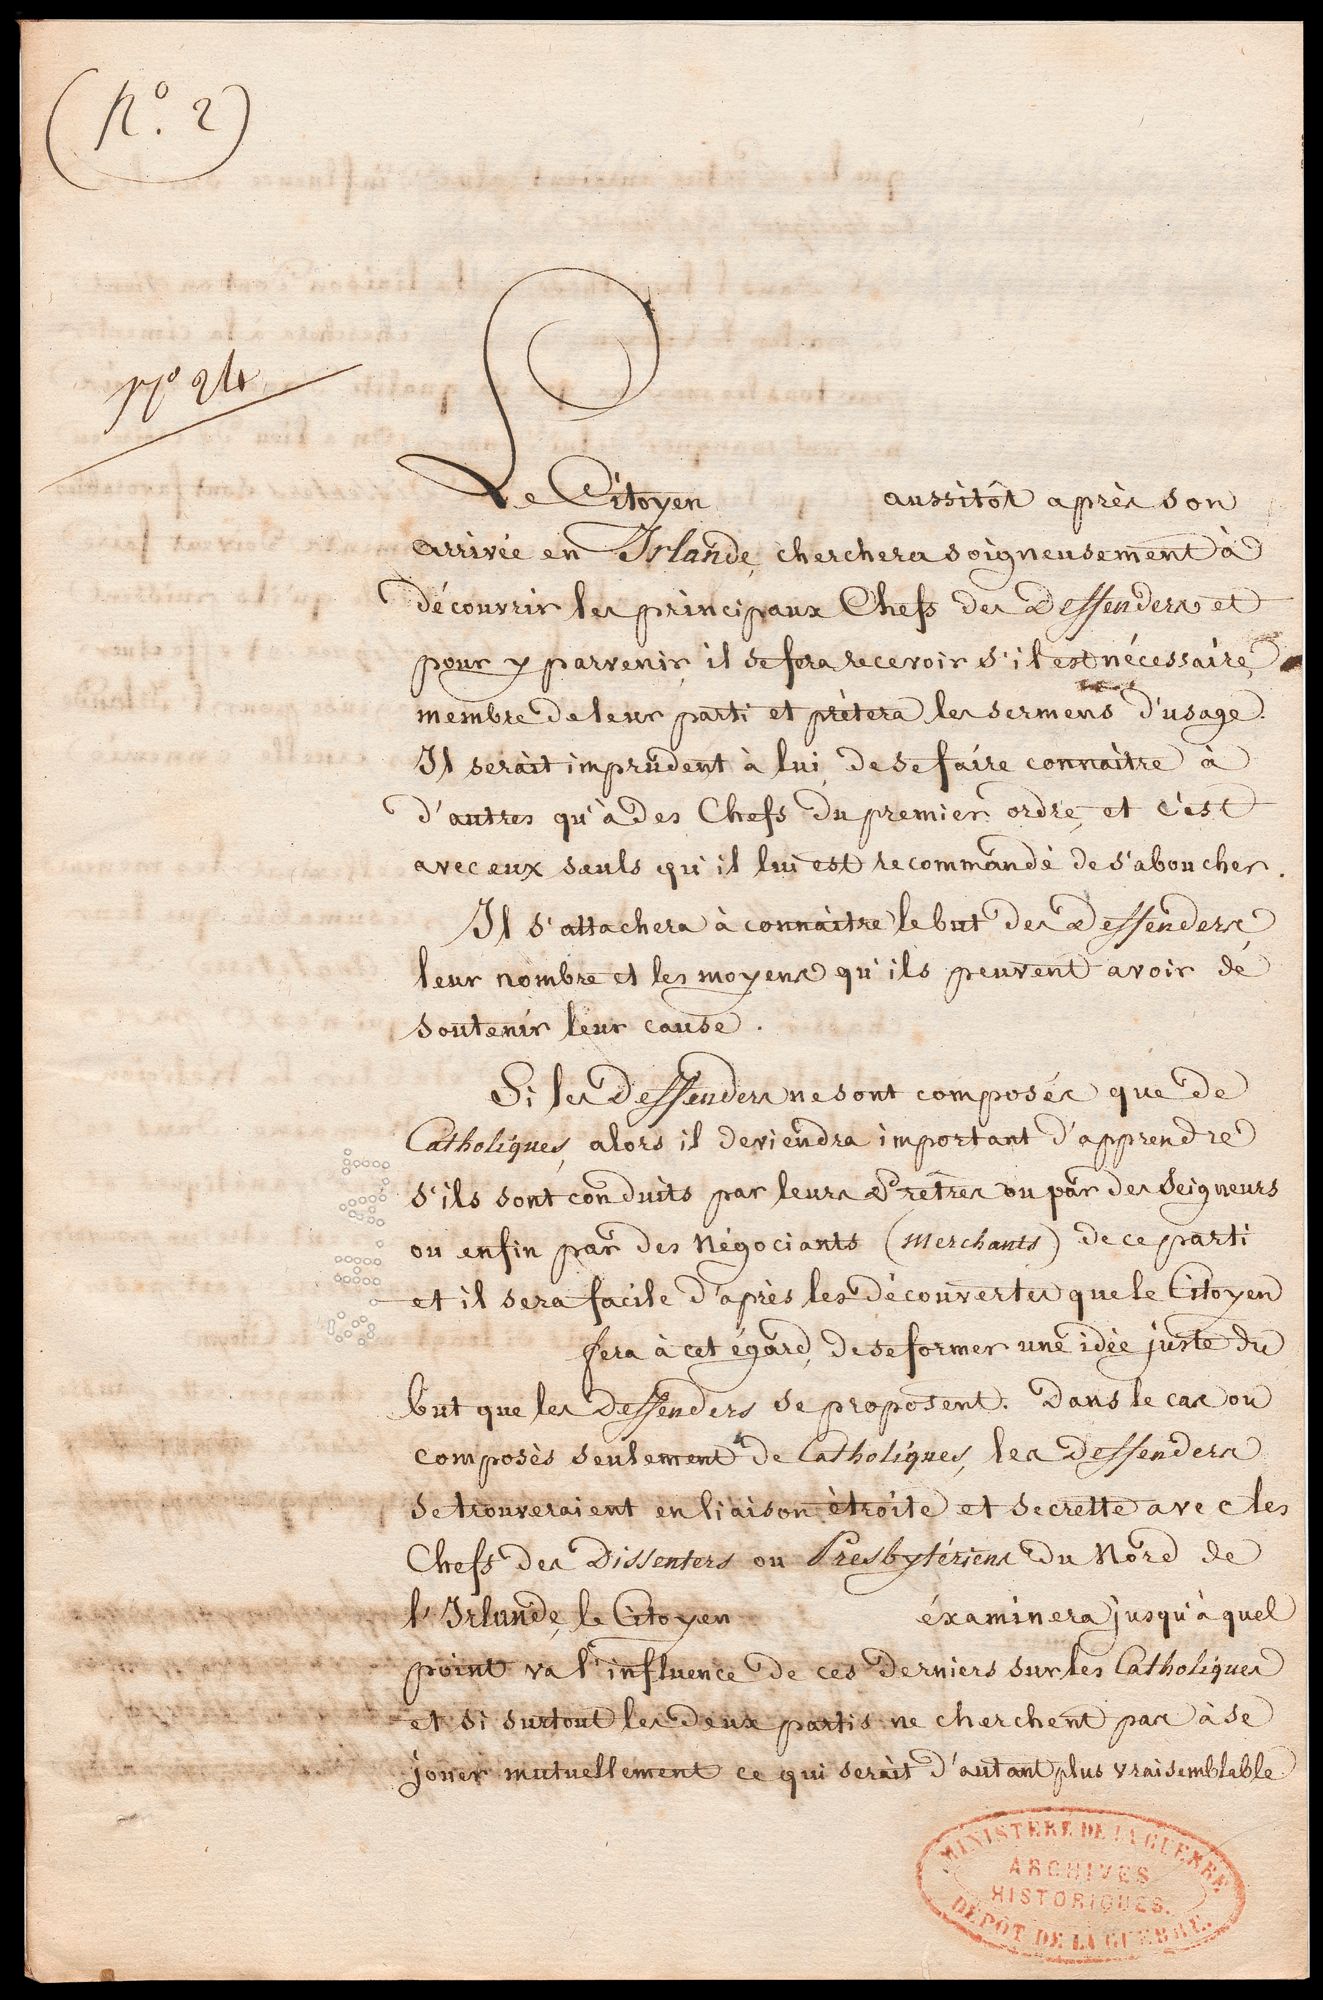 (N.º 2)
Nº 24
Le Citoyen aussitôt après son
arrivée en Irlande, cherchera soigneusement à
découvrir les principaux Chefs des Deffenders et
pour y parvenir, il se fera recevoir s'il est nécessaire,
membre de leur parti et prètera les sermens d'usage.
Il serait imprudent à lui de se faire connaitre à
d'autres qu'à des Chefs du premier ordre, et c'est
avec eux seuls qu'il lui est recommandé de s'aboucher.
Il s'attachera à connaitre le but des Deffenders,
leur nombre et les moyens qu'ils peuvent avoir de
soutenir leur cause.
Si les Deffenders ne sont composés que de
Catholiques, alors il deviendra important d'apprendre
s'ils sont conduits par leurs Pretres ou par des Seigneurs
ou enfin par des Négociants (Merchants) de ce parti
et il sera facile d'après les découvertes que le Citoyen
fera à cet égard, de se former une idée juste du
but que les Deffenders se proposent. Dans le cas ou
composès seulement de Catholiques, les Deffenders
se trouveraient en liaison ètroite et secrette avec les
Chefs des Dissenters ou Presbytériens du Nord de
l'Irlande, le Citoyen éxaminera jusqu'à quel
point va l'influence de ces derniers sur les Catholiques
et si surtout les deux partis ne cherchent pas à se
jouer mutuellement ce qui serait d'autant plus vraisemblable
MINISTÈRE DE LA GUERRE.
ARCHIVES
HISTORIQUES.
DÉPÔT DE LA GUERRE.